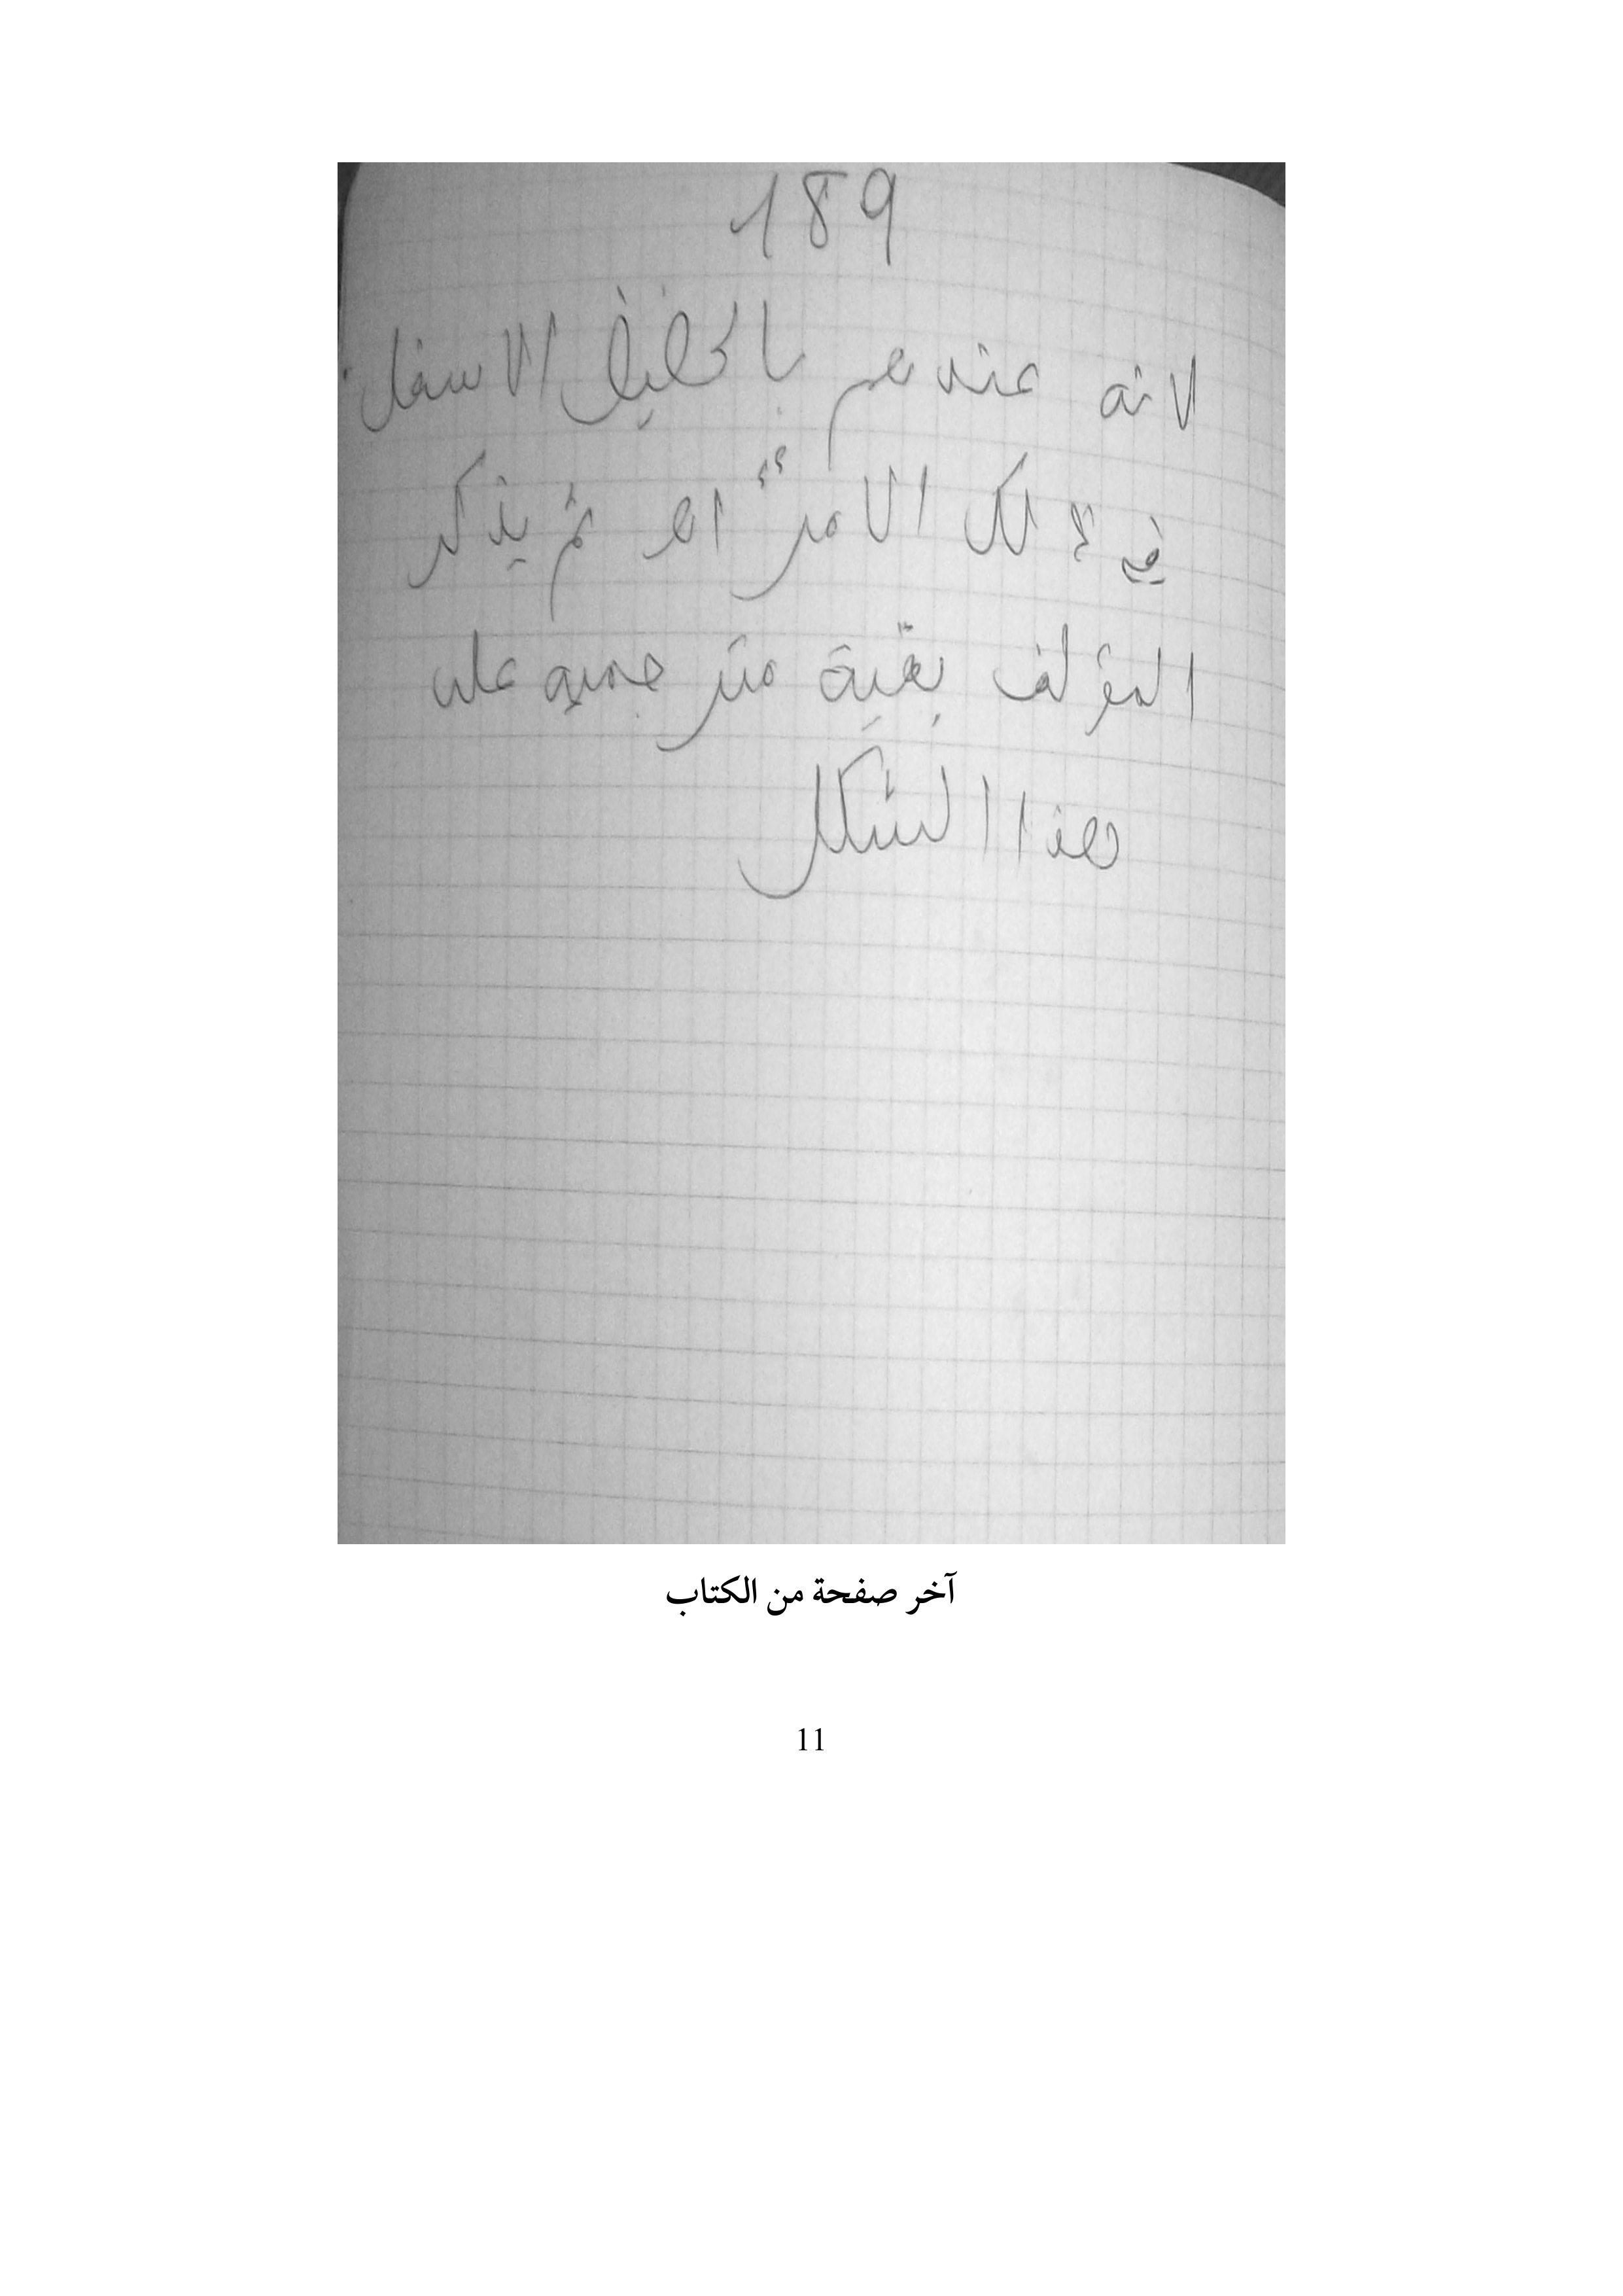 189
لانه عندهم بالحضيض الاسفل.
في ذلك الامر" اهـ ثم يذكر
المؤلف بقية مترجميه على
هذا الشكل
آخر صفحة من الكتاب
11